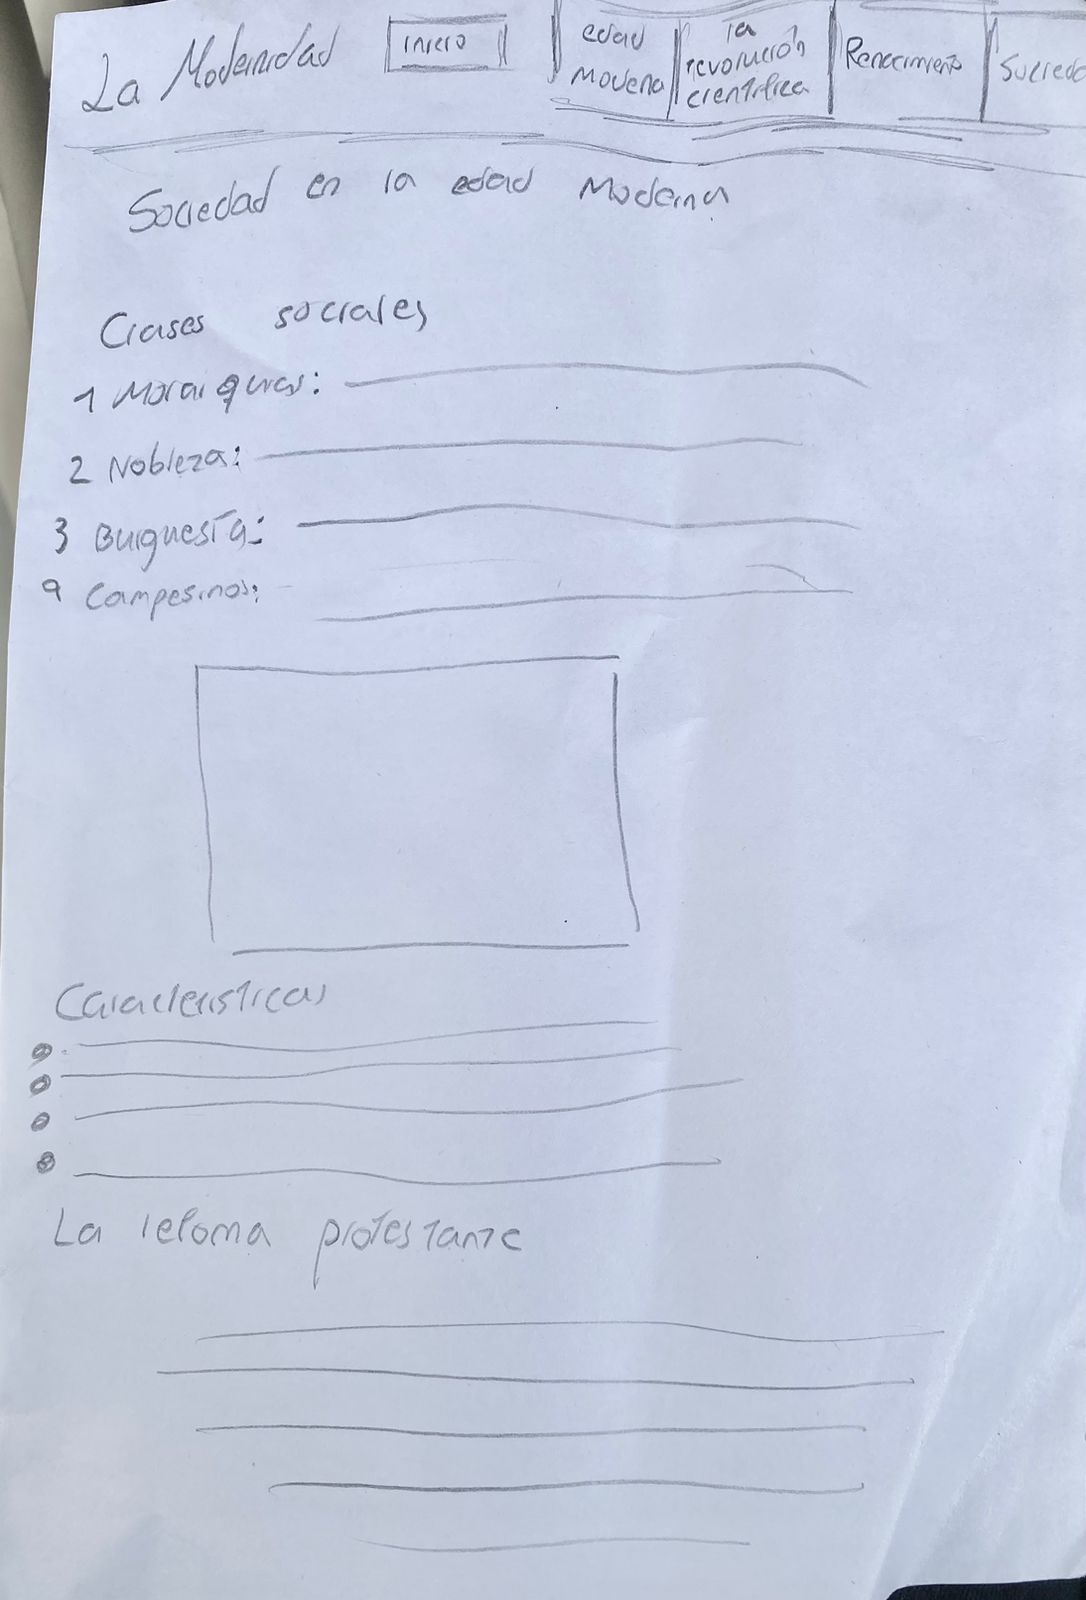 La Modernidad
inicio
edad
Moderna
la
revolución
científica
Renacimiento
Socieda
Sociedad en la edad Moderna
Clases sociales
1 Monarquias:
2 Nobleza:
3 Burguesía:
4 Campesinos:
Caracteristicas
La reforma protestante